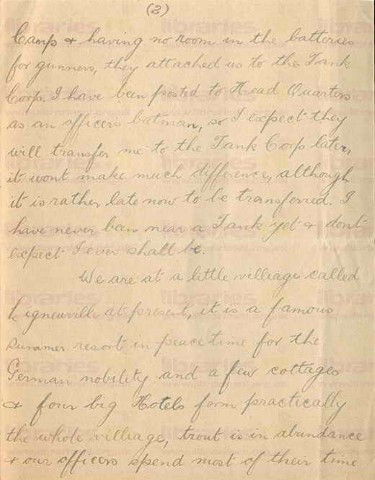 (3)
Camp & having no room in the batteries
for gunners, they attached us to the Tank
Corps, I have been posted to Head Quarters
as an officers batman, so I expect they
will transfer me to the Tank Corp later,
it wont make much difference, although
it is rather late now to be transferred. I
have never been near a Tank yet & dont
expect I ever shall be.
We are at a little villiage called
Ligneuville at present, it is a famous
summer resort in peace time for the
German nobility and a few cottages
& four big Hotels form practically
the whole villiage, trout is in abundance
& our officers spend most of their time